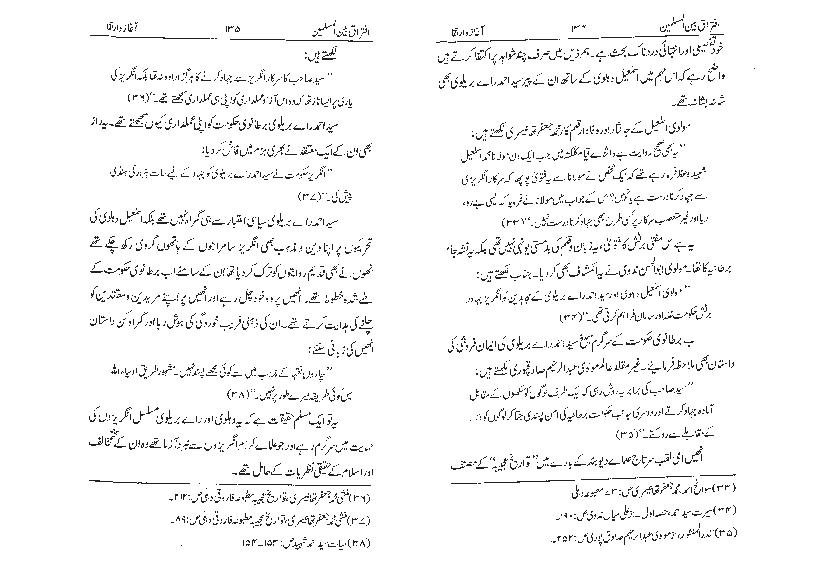 افتراق بین المسلمین ۱۳۴ آغاز و ارتقا
تفصیلی اور انتہائی دردناک بحث ہے۔ ہم ذیل میں صرف چند شواہد پر اکتفا کرتے ہیں
واضح رہے کہ اس مہم میں اسمٰعیل دہلوی کے ساتھ ان کے پیر سید احمد رائے بریلوی بھی
شانہ بشانہ تھے۔
مولوی اسمٰعیل کے جانثار اور وفادار قلمکار محمد جعفر تھانیسری لکھتے ہیں:
”یہ بھی صحیح روایت ہے کہ اثنائے قیام کلکتہ میں جب ایک دن مولانا محمد اسمٰعیل
شہید وعظ فرما رہے تھے کہ ایک شخص نے مولانا سے یہ فتویٰ پوچھا کہ سرکار انگریزی
سے جہاد کرنا درست ہے یا نہیں؟ اس کے جواب میں مولانا نے فرمایا کہ ایسی بے رو
ریا اور غیر متعصب سرکار پر کسی طرح بھی جہاد کرنا درست نہیں۔“ (۳۳)
یہ ہے اس مفتی برٹش کا فتویٰ، یہ زبان و قلم کی بدمستی یونہی نہیں تھی بلکہ یہ نشہ جام
برطانیہ کا تھا۔ مولوی ابوالحسن ندوی نے یہ انکشاف بھی کر دیا۔ جناب لکھتے ہیں:
”مولوی اسمٰعیل دہلوی اور سید احمد رائے بریلوی کے مجاہدین کو انگریز بہادر
برٹش حکومت نقد اور سامان فراہم کرتی تھی۔“ (۳۴)
اب برطانوی حکومت کے سرگرم مبلغ سید احمد رائے بریلوی کی ایمان فروشی کی
داستان بھی ملاحظہ فرمایئے۔ غیر مقلد عالم مولوی عبدالرحیم صادقپوری لکھتے ہیں:
”سید صاحب کی برابر یہ روش رہی کہ ایک طرف لوگوں کو سکھوں کے مقابل
آمادہ جہاد کرتے اور دوسری جانب حکومت برطانیہ کی امن پسندی جتا کر لوگوں کو اس
کے مقابلے سے روکتے“ (۳۵)
انھیں امی لقب سرتاج علمائے دیوبند کے بارے میں ”تواریخ عجیبہ“ کے مصنف
(۳۳) سوانح احمدی محمد جعفر تھانیسری ص: ۴۷ مطبوعہ دہلی
(۳۴) سیرت سید احمد، حصہ اول۔ از علی میاں ندوی ص: ۱۹۰۔
(۳۵) الدر المنثور، از مولوی عبدالرحیم صادق پوری ص: ۲۵۲۔
افتراق بین المسلمین ۱۳۵ آغاز و ارتقا
لکھتے ہیں:
”سید صاحب کا سرکار انگریز سے جہاد کرنے کا ہرگز ارادہ نہ تھا بلکہ انگریز کی
یاری پر ایسا ناز تھا کہ وہ اس آزاد عملداری کو اپنی ہی عملداری سمجھتے تھے۔“ (۳۶)
سید احمد رائے بریلوی برطانوی حکومت کو اپنی عملداری کیوں سمجھتے تھے۔ یہ راز
بھی ان کے ایک معتقد نے بھری بزم میں فاش کر دیا:
”انگریز حکومت نے سید احمد رائے بریلوی کو جہاد کے لیے سات ہزار کی ہنڈی
پیش کی۔“ (۳۷)
سید احمد رائے بریلوی سیاسی اعتبار سے ہی گمراہ نہیں تھے بلکہ اسمٰعیل دہلوی کی
تحریکوں پر اپنا دین و مذہب بھی انگریز سامراجوں کے ہاتھوں گروی رکھ چکے تھے
انھوں نے بھی قدیم روایتوں کو ترک کر دیا تھا ان کے سامنے اب برطانوی حکومت کے
طے شدہ خطوط تھے۔ انھیں پر وہ خود چل رہے اور انھیں پر اپنے مریدین و معتقدین کو
چلنے کی ہدایت کرتے تھے۔ ان کی ذہنی فریب خوردگی کی ہوش ربا اور گمراہ کن داستان
انھیں کی زبانی سنئے:
اولیاء اللہ
میں کوئی طریقہ میرے طور پر نہیں۔“ (۳۸)
یہ تو ایک مسلم حقیقت ہے کہ یہ دہلوی اور رائے بریلوی مسلسل انگریزوں کی
حمایت میں سرگرم رہے اور جو علمائے کرام انگریزوں سے نبرد آزما تھے وہ ان کے سخت مخالف
اور اسلام کے حقیقی نظریات کے حامل تھے۔
(۳۶) منشی محمد جعفر تھانیسری، تواریخ عجیبہ مطبوعہ فاروقی دہلی ص: ۲۱۴۔
(۳۷) منشی محمد جعفر تھانیسری، تواریخ عجیبہ مطبوعہ فاروقی دہلی ص: ۸۹۔
(۳۸) حیات سید احمد شہید ص: ۱۵۳۔ ۱۵۴